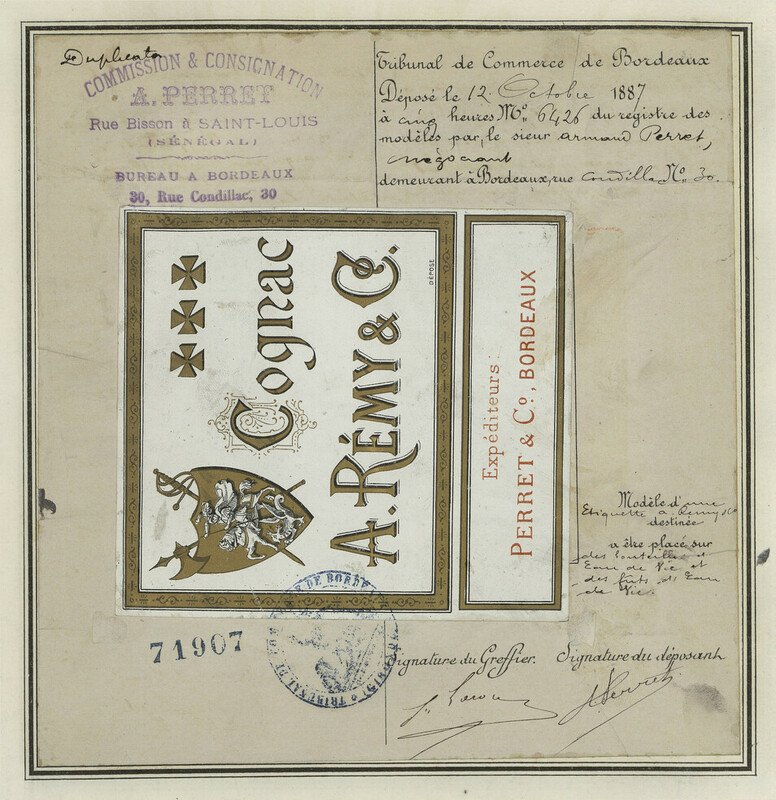 Duplicata
COMMISSION & CONSIGNATION
A. PERRET
Rue Bisson à SAINT-LOUIS
(SÉNÉGAL)
BUREAU A BORDEAUX
30, Rue Condillac, 30
Tribunal de Commerce de Bordeaux
Déposé le 12 Octobre 1887
à cinq heures Mº. Nº 6426 du registre des
modèles par, le sieur Armand Perret,
négociant
demeurant à Bordeaux, rue Condillac Nº 30.
Cognac
A. RÉMY & Cº.
DÉPOSÉ
Expéditeurs:
PERRET & Cº., BORDEAUX
Modèle d'une
Etiquette A. Remy & Cº
destinée
a être placé sur
des bouteilles d'
Eau de Vie et
des fûts d'Eau
de Vie.
71907
TRIBUNAL DE COMMERCE DE BORDEAUX
Signature du Greffier. Signature du déposant
A Perret